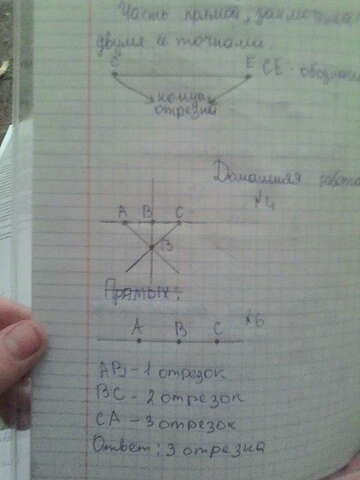 Часть прямой,
двумя её точками.
C E CE - обознач
концы
отрезка
Домашняя работа
№4
A B C
B
Прямых:
№6
A B C
AB - 1 отрезок
BC - 2 отрезок
CA - 3 отрезок
Ответ: 3 отрезка